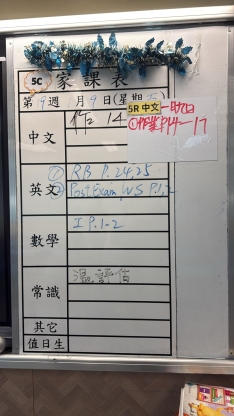 5C 家課表
第 9 週 月 9 日(星期五)
中文 作2 14
5R 中文
①作業P14-17
英文 ① RB P.24,25
② Post Exam WS P.1,2
數學 I P.1-2
常識 溫評估
其它
值日生